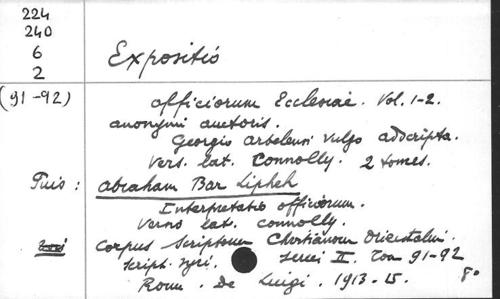 224
240
6
2
Expositio
(91-92)
officiorum Ecclesiae. Vol. 1-2.
anonymi auctoris.
Georgio Arbelensi vulgo addscripta.
Vers. lat. Connolly. 2 tomes.
Puis : Abraham Bar Lipheh
Interpretatio officiorum.
Versio lat. Connolly.
Corpus Scriptorum Christianorum Orientalium.
Script. syri. Series II. Tom 91-92
Rom. De Luigi. 1913-15. 8°